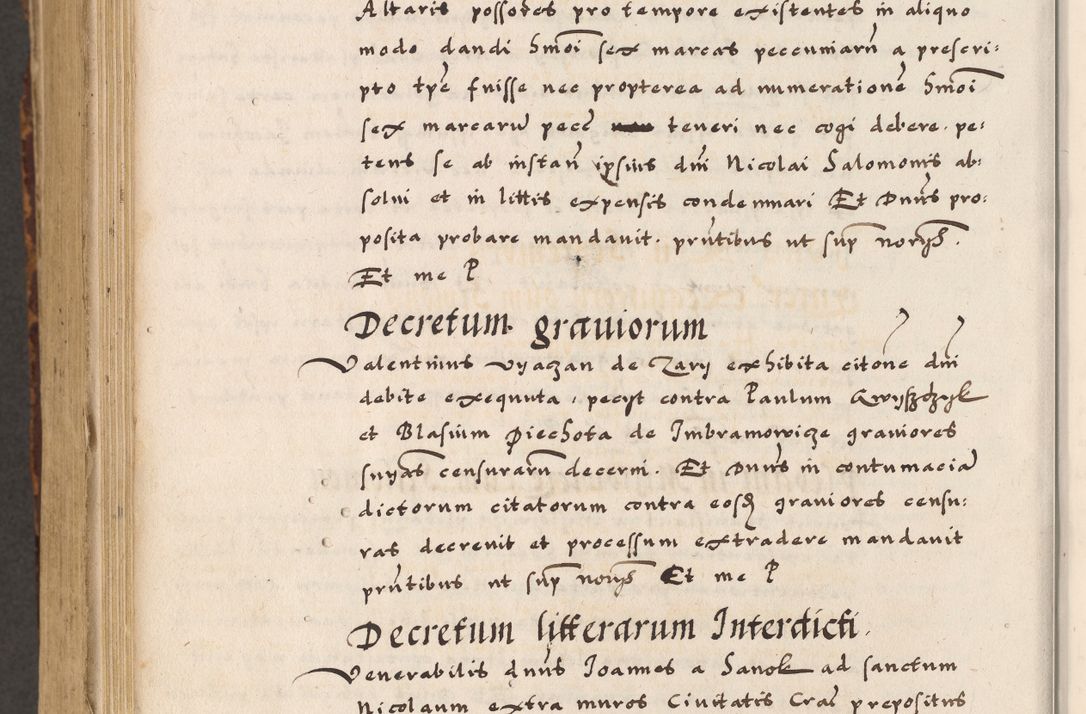 Altaris possores pro tempore existentes in aliquo
modo dandi hmoi sex marcas pecuniarū a prescri:
pto tpe fuisse nec propterea ad numerationē hmoi
sex marcarū pecē teneri nec cogi debere. pe:
tens se ab instan ipsius dni Nicolai Salomonis ab:
solui et in littis expensis condemnari Et Dnus pro:
posita probare mandauit. pritibus ut sup noryis.
Et me P
Decretum grauiorum
Valentinus vyaczan de Zary exhibita citone dni
debite exequuta, pecyt contra Paulum
et Blasium Piechota de Imbramowicze grauiores
suyas censurarū decerni. Et Dnus in contumaciā
dictorum citatorum contra eosd grauiores censu:
ras decreuit et processum extradere mandauit
pritibus ut sup noryis Et me P
Decretum litterarum Interdicti.
Venerabilis dnus Ioannes a Sanok ad sanctum
Nicolaum extra muros Ciuitatis Crac prepositus